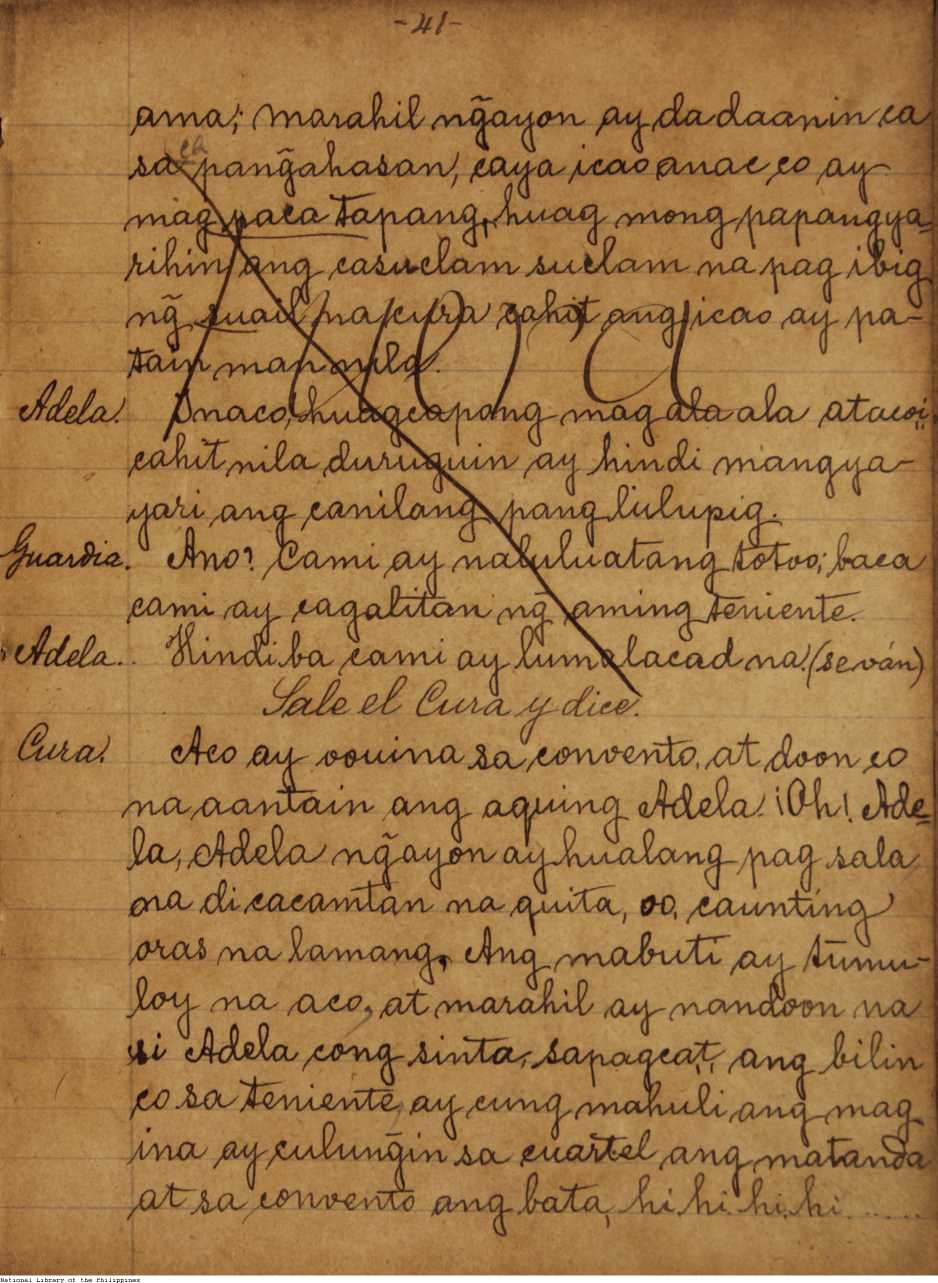 -41-
ama; marahil ng̃ayon ay dadaanin ca
ca
sa pang̃ahasan, caya icao anac co ay
mag paca tapang, huag mong papangya-
rihin ang casuclam suclam na pag ibig
ng̃ suail na cura cahit ang icao ay pa-
tain man nila.
Adela. Inaco, huag capong mag ala ala at acoi,
cahit nila duruguin ay hindi mangya-
yari ang canilang pang lulupig.
Guardia. Ano? Cami ay naluluatang totoo; baca
cami ay cagalitan ng̃ aming teniente.
Adela. Hindi ba cami ay lumalacad na. (se ván)
Sale el Cura y dice.
Cura. Aco ay oouina sa convento, at doon co
na aantain ang aquing Adela. ¡Oh! Ade-
la, Adela ng̃ayon ay hualang pag sala
na di cacamtan na quita, oo, caunting
oras na lamang. Ang mabuti ay tumu-
loy na aco, at marahil ay nandoon na
si Adela cong sinta, sapagcat, ang bilin
co sa teniente, ay cung mahuli ang mag
ina ay culung̃in sa cuartel ang matanda
at sa convento ang bata, hi. hi. hi. hi......
National Library of the Philippines